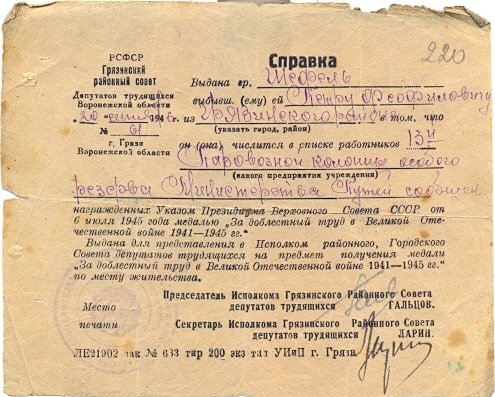 220
РСФСР
Грязинский
районный совет
Депутатов трудящихся
Воронежской области
20 сентября 1946 г.
№ 61
г. Грязи
Воронежской области
Справка
Выдана гр. Шефель
выбывш. (ему) ей Петру Феофиловичу
из Грязинского района в том, что
(указать город, район)
он (она) числится в списке работников 134
Паровозной колонны особого
(какого предприятия учреждения)
резерва Министерства Путей сообщен.
награжденных Указом Президиума Верховного Совета СССР от
6 июля 1945 года медалью „За доблестный труд в Великой Отече-
ственной войне 1941—1945 гг."
Выдана для представления в Исполком районного, Городского
Совета депутатов трудящихся на предмет получения медали
„За доблестный труд в Великой Отечественной войне 1941—1945 гг."
по месту жительства.
Место
печати
Председатель Исполкома Грязинского Районного Совета
депутатов трудящихся ГАЛЬЦОВ.
Секретарь Исполкома Грязинского Районного Совета
депутатов трудящихся ЛАРИН.
ЛЕ21902 зак № 633 тир 200 экз тип УИиП г. Грязи